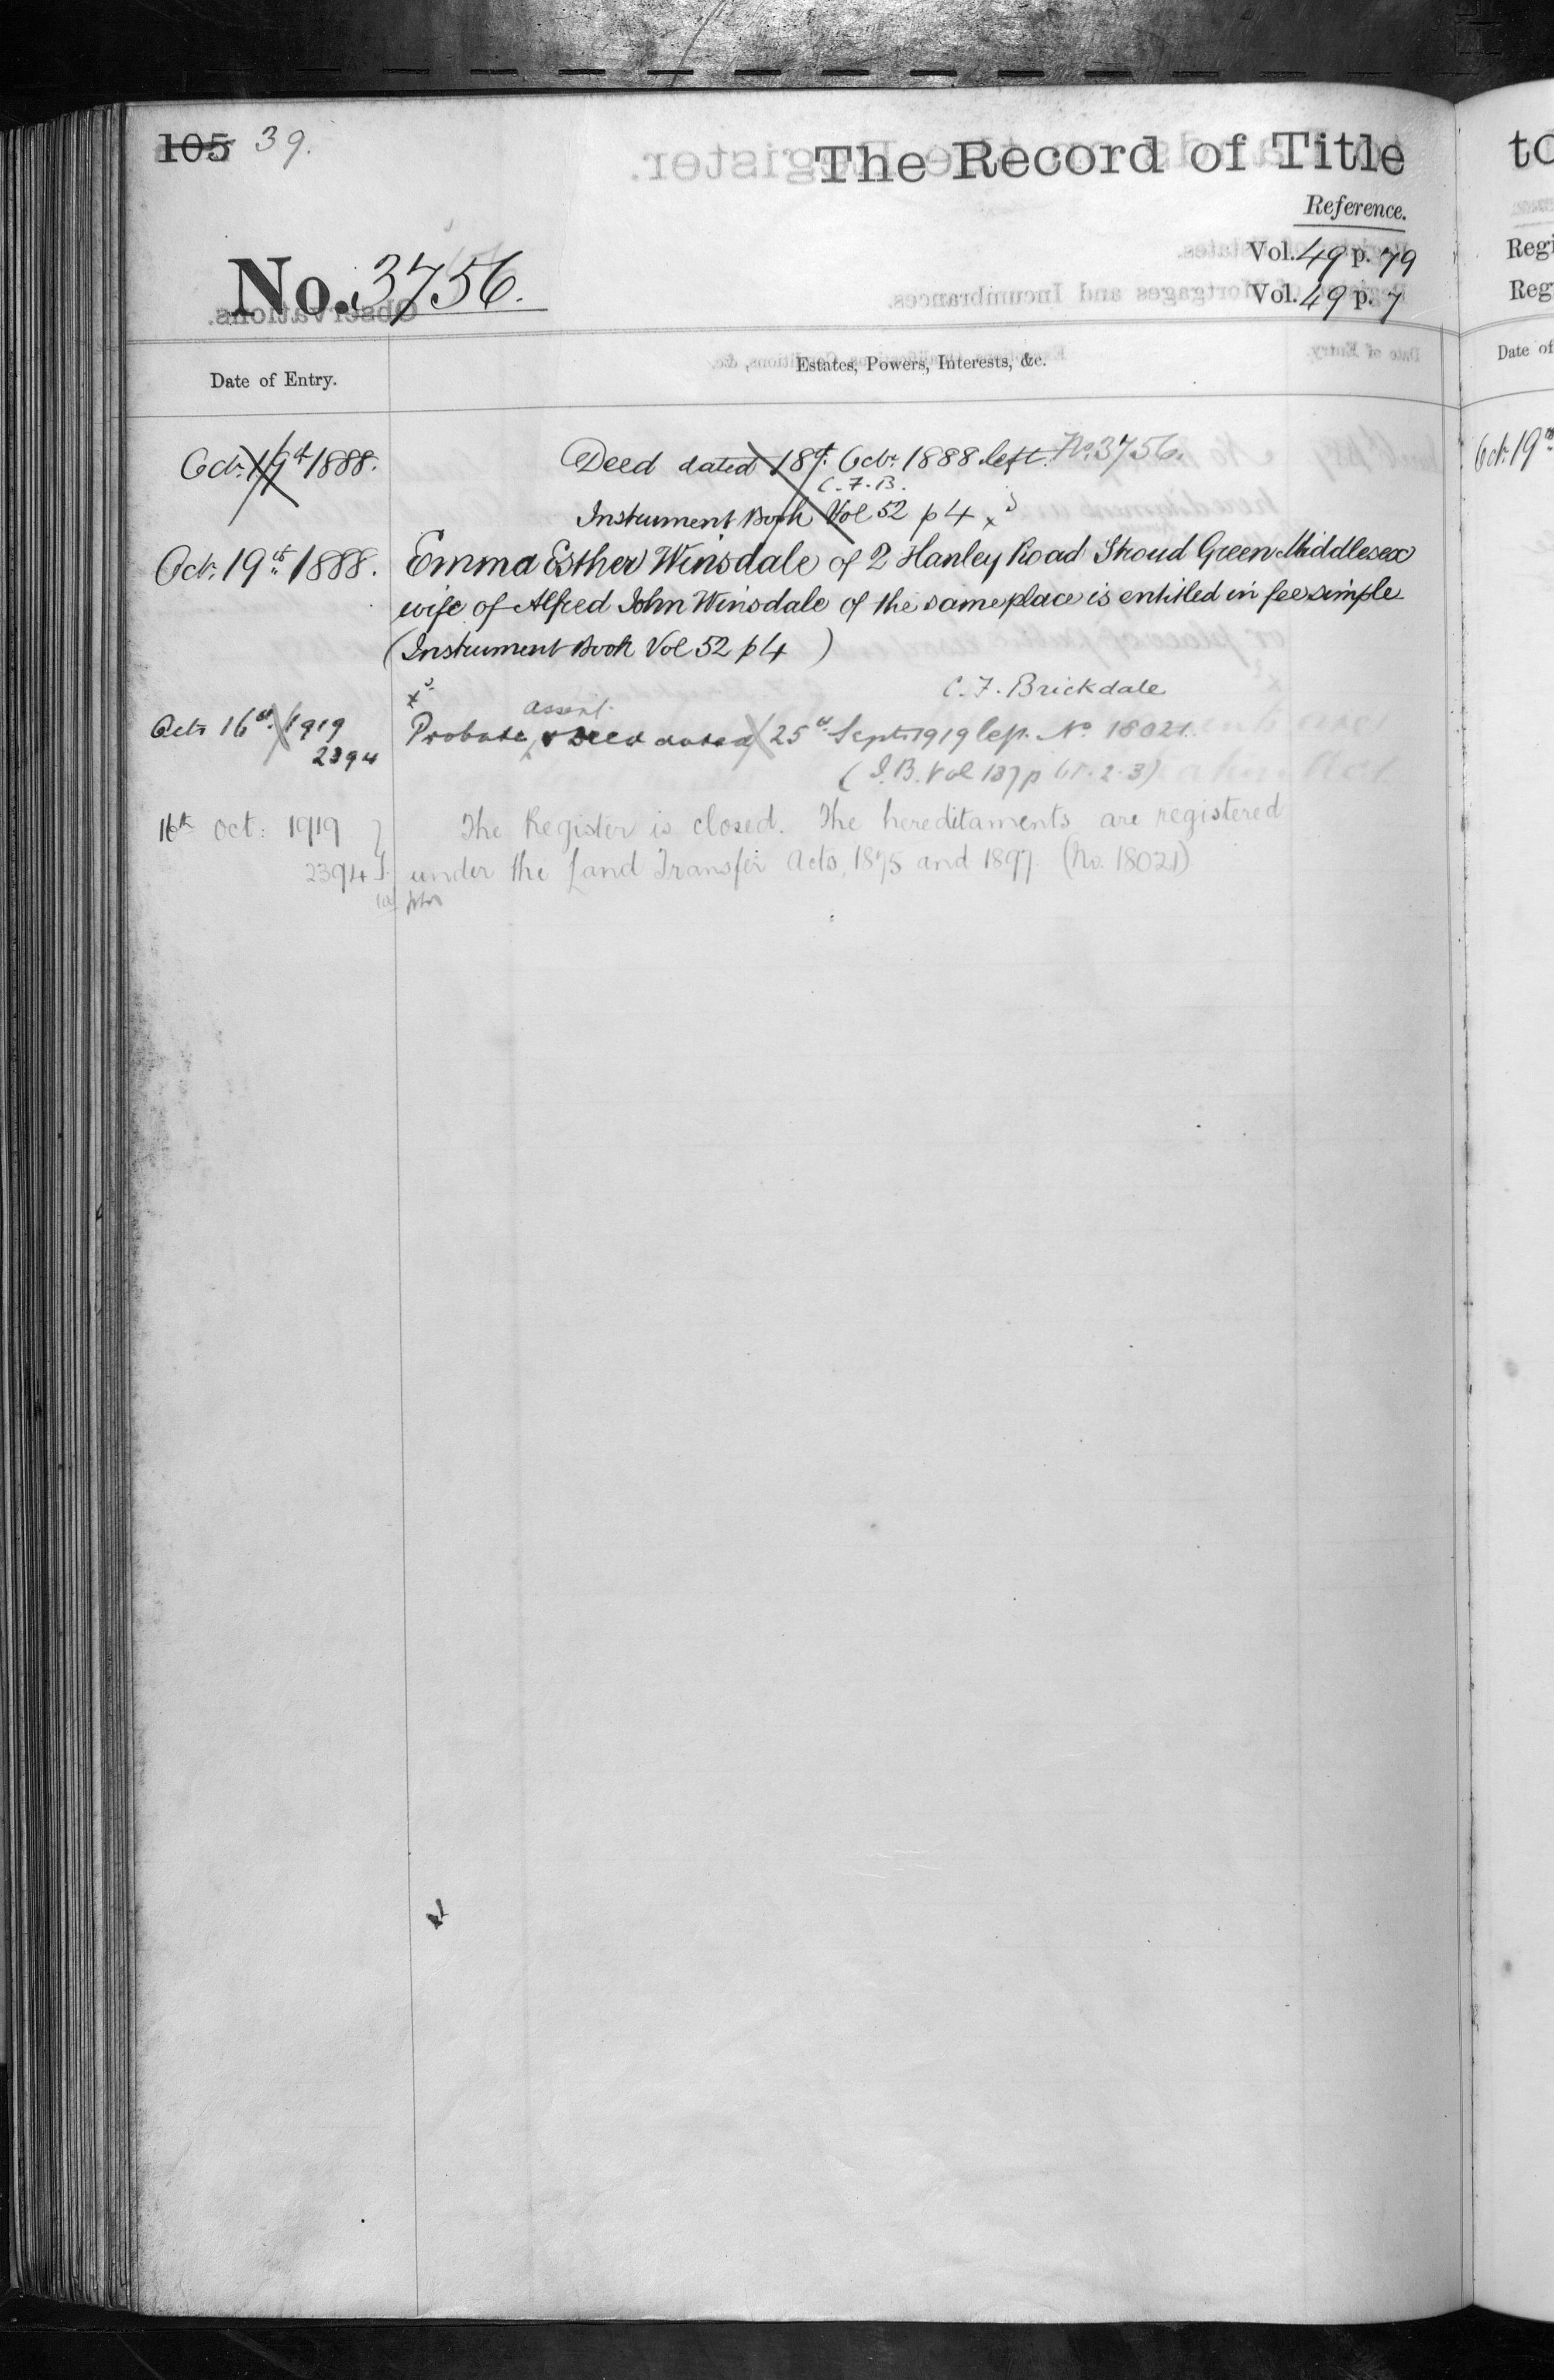 105 39.
The Record of Title
Reference.
No. 3756.
Vol. 49 p. 79
Vol. 49 p. 7
Date of Entry.
Estates, Powers, Interests, &c.
Octr. 19th 1888.
Deed dated 18th Octr. 1888 left. No. 3756.
C.F.B.
Instrument Book Vol 52 p 4
Oct. 19th 1888.
Emma Esther Winsdale of 2 Hanley Road Stroud Green Middlesex
wife of Alfred John Winsdale of the same place is entitled in fee simple
(Instrument Book Vol 52 p 4 )
C. F. Brickdale
assent
Oct 16th 1919
Probate & Deed dated 25th Sept. 1919 left. No. 18021.
2394
(I.B. Vol 137 p 1. 2. 3)
16th Oct: 1919
The Register is closed. The hereditaments are registered
2394
under the Land Transfer Acts, 1875 and 1897. (No. 18021)
to
Regi
Reg
Date of
Oct. 19th